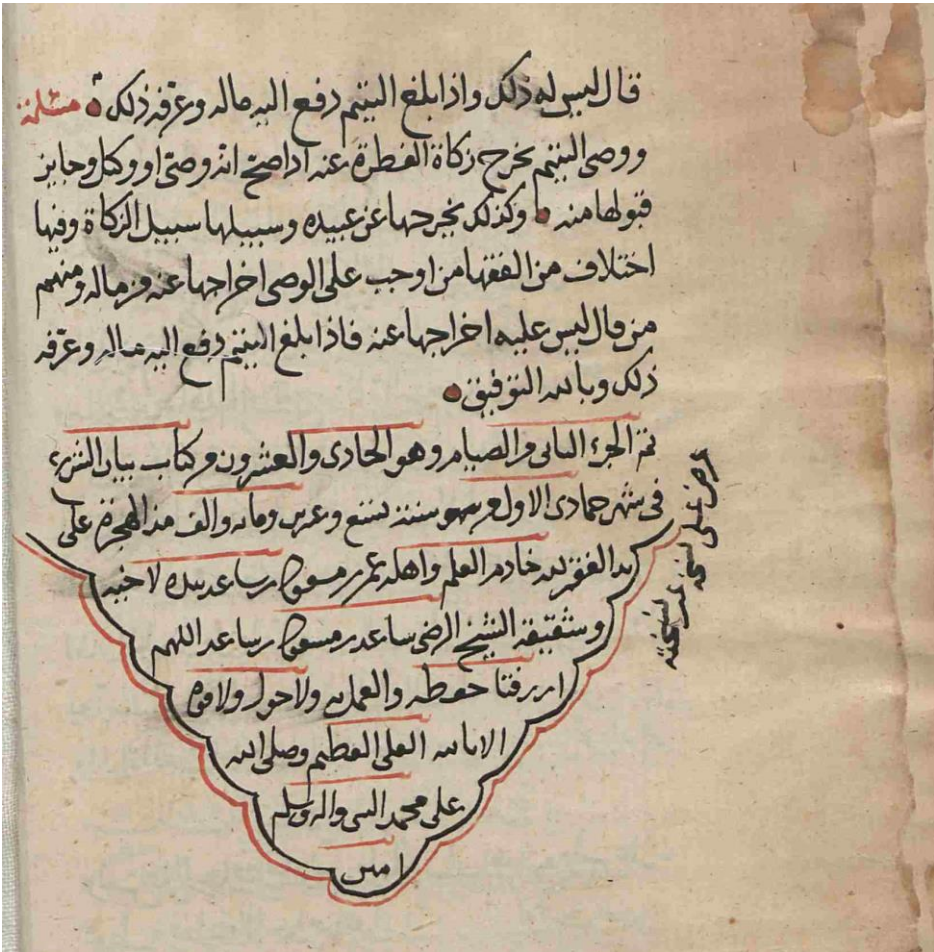 قال ليس له ذلك واذا بلغ اليتيم دفع اليه ماله وعرفه ذلك مسئلة
ووصي اليتيم يخرج زكاة الفطرة عنه اذا صح انه وصي او وكيل وجايز
قبولها منه وكذلك يخرجها عن عبيده وسبيلها سبيل الزكاة وفيها
اختلاف من الفقها من اوجب على الوصي اخراجها عنه من ماله ومنهم
من قال ليس عليه اخراجها عنه فاذا بلغ اليتيم دفع اليه ماله وعرفه
ذلك وبالله التوفيق
تم الجزء الثاني من الصيام وهو الحادي والعشرون من كتاب بيان الشرع
في شهر جمادى الاول سنة تسع وعشرين ومايه والف من الهجرة على
يد الفقير لله خادم العلم واهله عمر بن مسعود بن ساعد بيده لاخيه
وشقيقه الشيخ الرضي ساعد بن مسعود بن ساعد اللهم
ارزقنا حفظه والعمل به ولا حول ولا قوة
الا بالله العلي العظيم وصلى الله
على محمد النبي واله وسلم
امين
عرض على نسخته